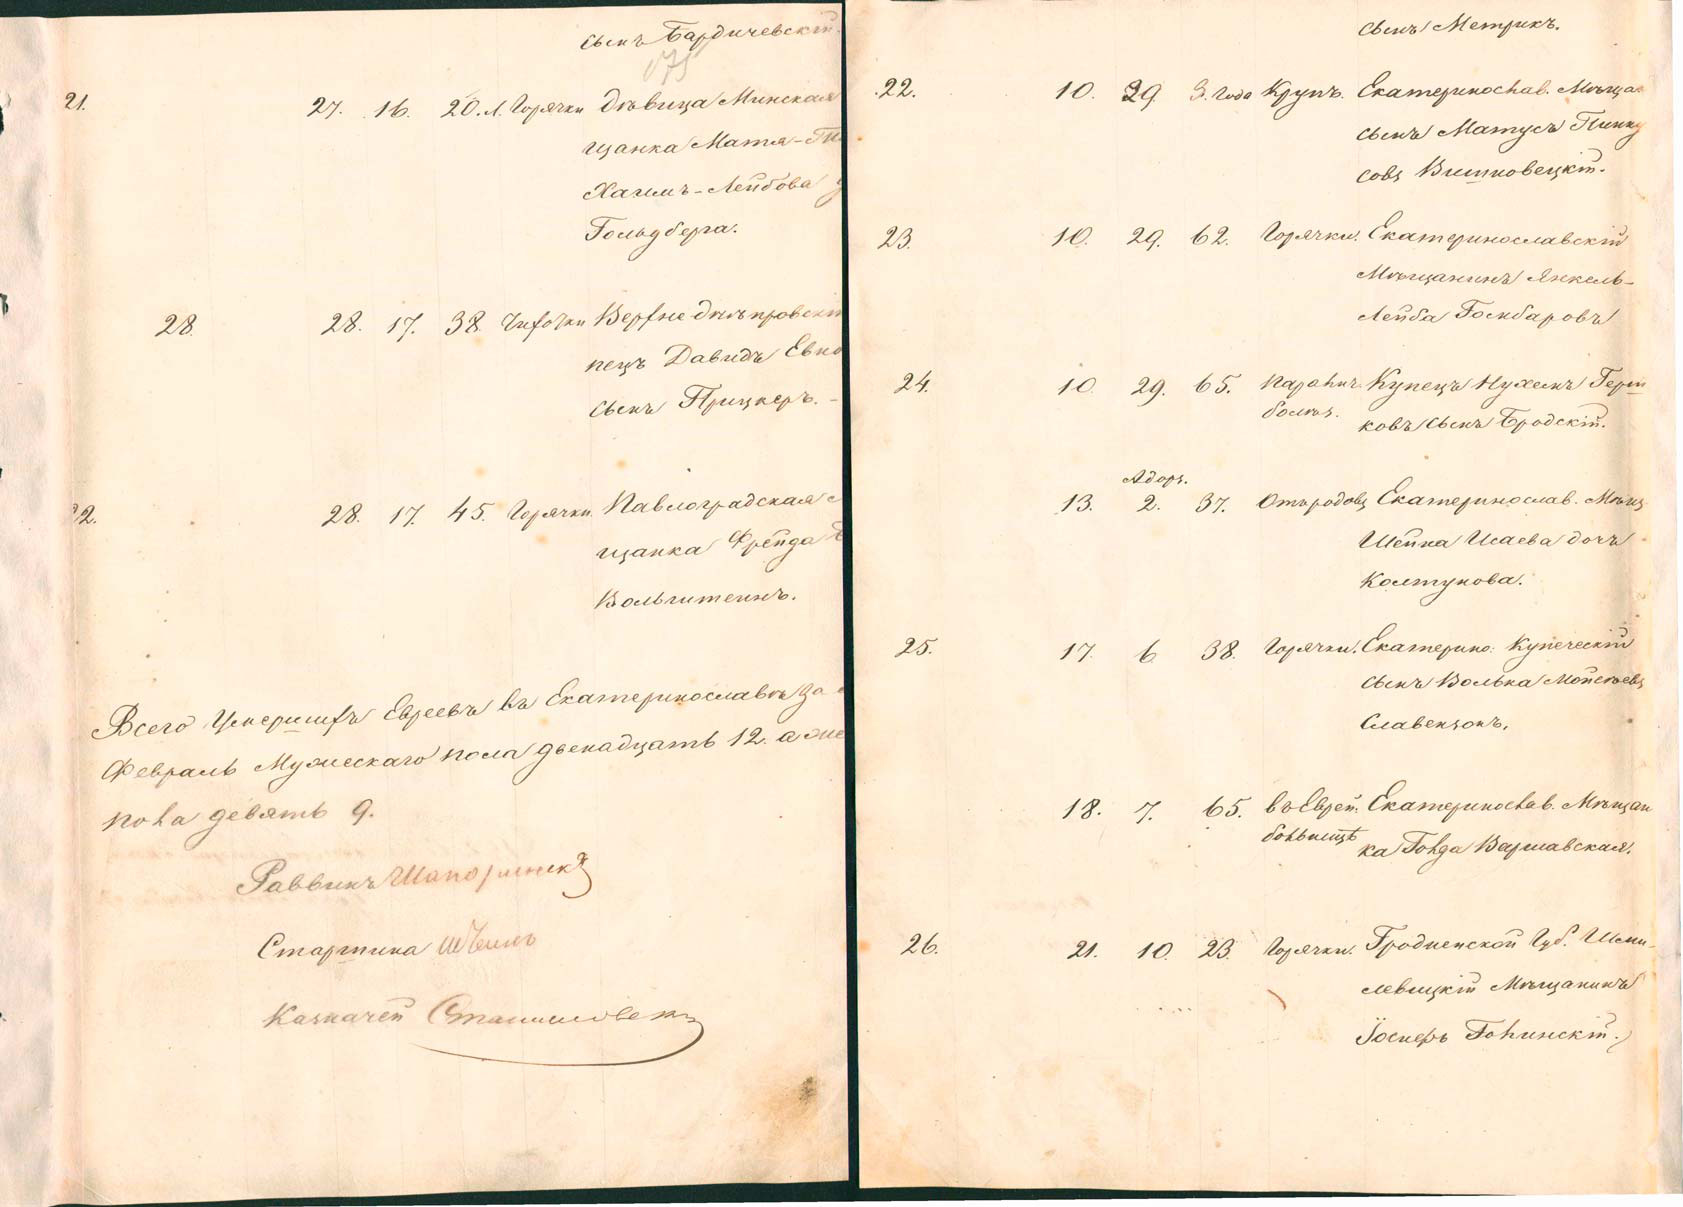 сынъ Бардичевскій.
175
21. 27. 16. 20. л. Горячки дѣвица Минская
щанка Матля-
Хаимъ-Лейбова
Гольдберга.
28. 28. 17. 38. Чахотки Верхнеднѣпровскій
пецъ Давидъ
сынъ Прицкеръ. -
22. 28. 17. 45. Горячки. Павлоградская
щанка Фрейда
Вольгитеинъ.
Всего Умершихъ Евреевъ въ Екатеринославѣ за
Февраль Мужескаго пола двенадцать 12. а
пола девять 9.
Раввинъ
Старшина
Казначей
сынъ Метрикъ.
22. 10. 29. 3. года Крупъ. Екатеринослав. Мѣщан
сынъ Матусъ Пинку
совъ Вишновецкій.
23. 10. 29. 62. Горячки. Екатеринославскій
Мѣщанинъ Янкель-
Лейба Гомбаровъ
24. 10. 29. 65. Паралич. Купецъ Нухемъ Герш
болѣз. ковъ сынъ Бродскій.
Адоръ.
13. 2. 37. Отъ родовъ Екатеринослав. Мѣщ
Шейна Исаева дочь
Колтунова.
25. 17. 6. 38. Горячки. Екатерино: Купеческій
сынъ Волька Мойсѣевъ
Славенсонъ.
18. 7. 65. въ Еврей. Екатеринослав. Мѣщан
больницѣ ка Голда Варшавская.
26. 21. 10. 23. Горячки. Гродненской Губ.
Мѣщанинъ
Голинскій.